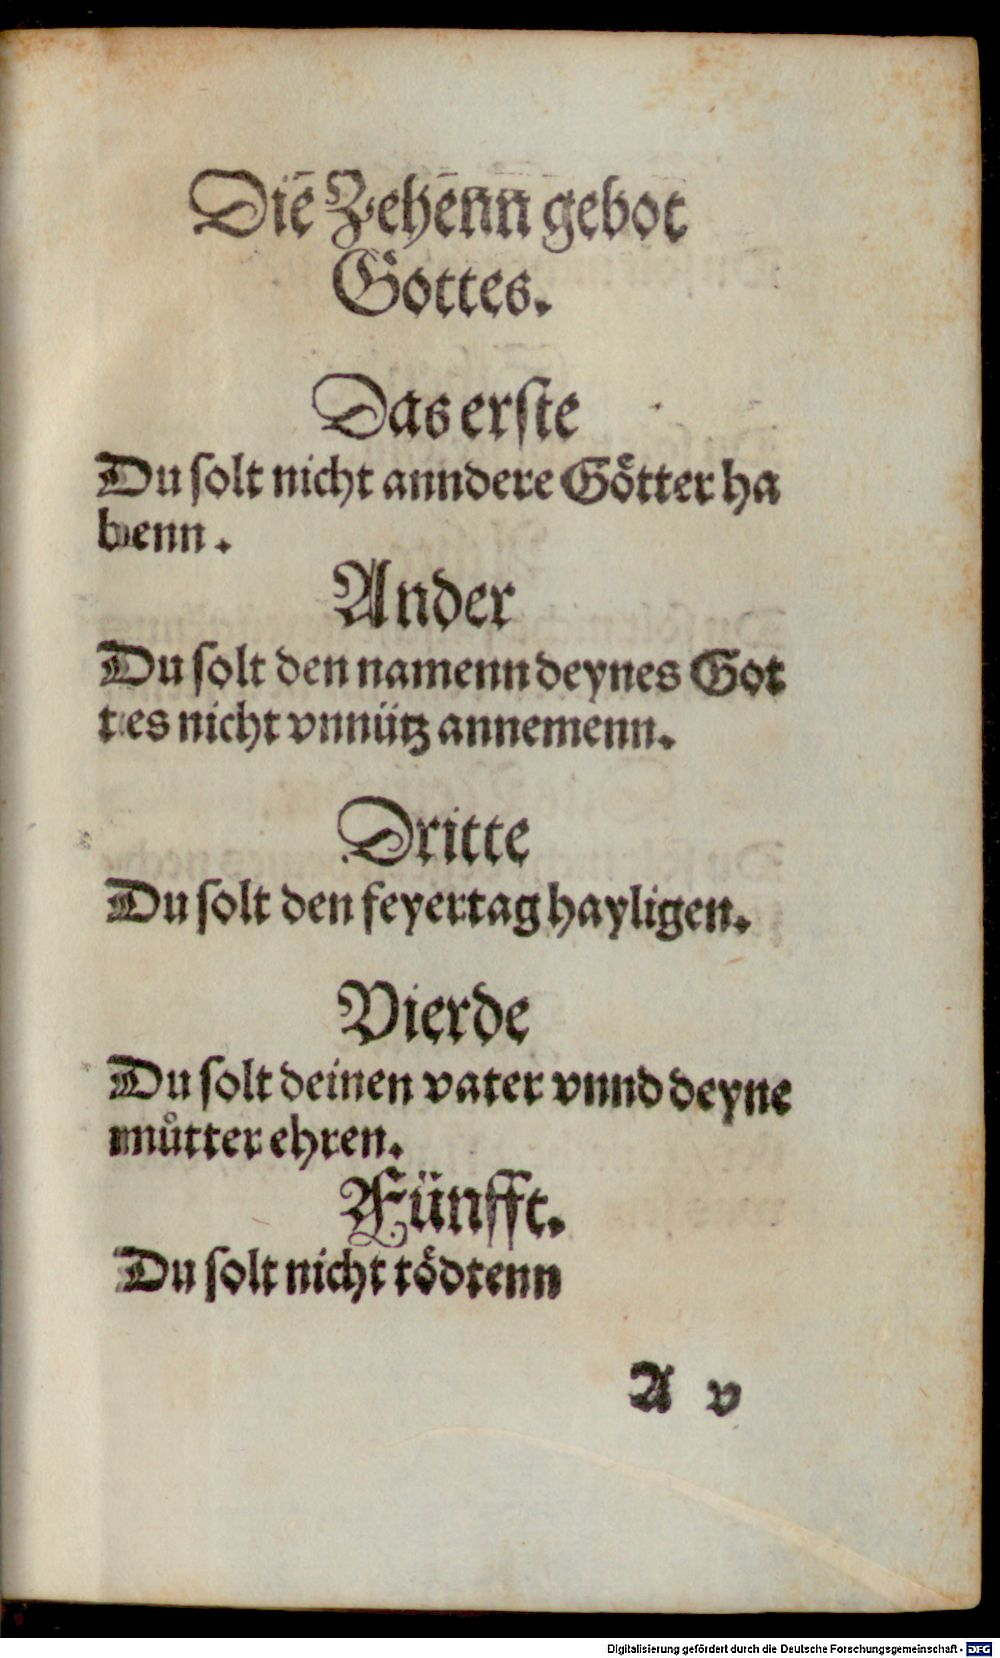 Die Zehenn gebot
Gottes.
Das erste
Du solt nicht anndere Goͤtter ha
benn.
Ander
Du solt den namenn deynes Got
tes nicht vnnütz annemenn.
Dritte
Du solt den feyertag hayligen.
Vierde
Du solt deinen vater vnnd deyne
muͦtter ehren.
Fünfft.
Du solt nicht tödtenn
A v
Digitalisierung gefördert durch die Deutsche Forschungsgemeinschaft - DFG